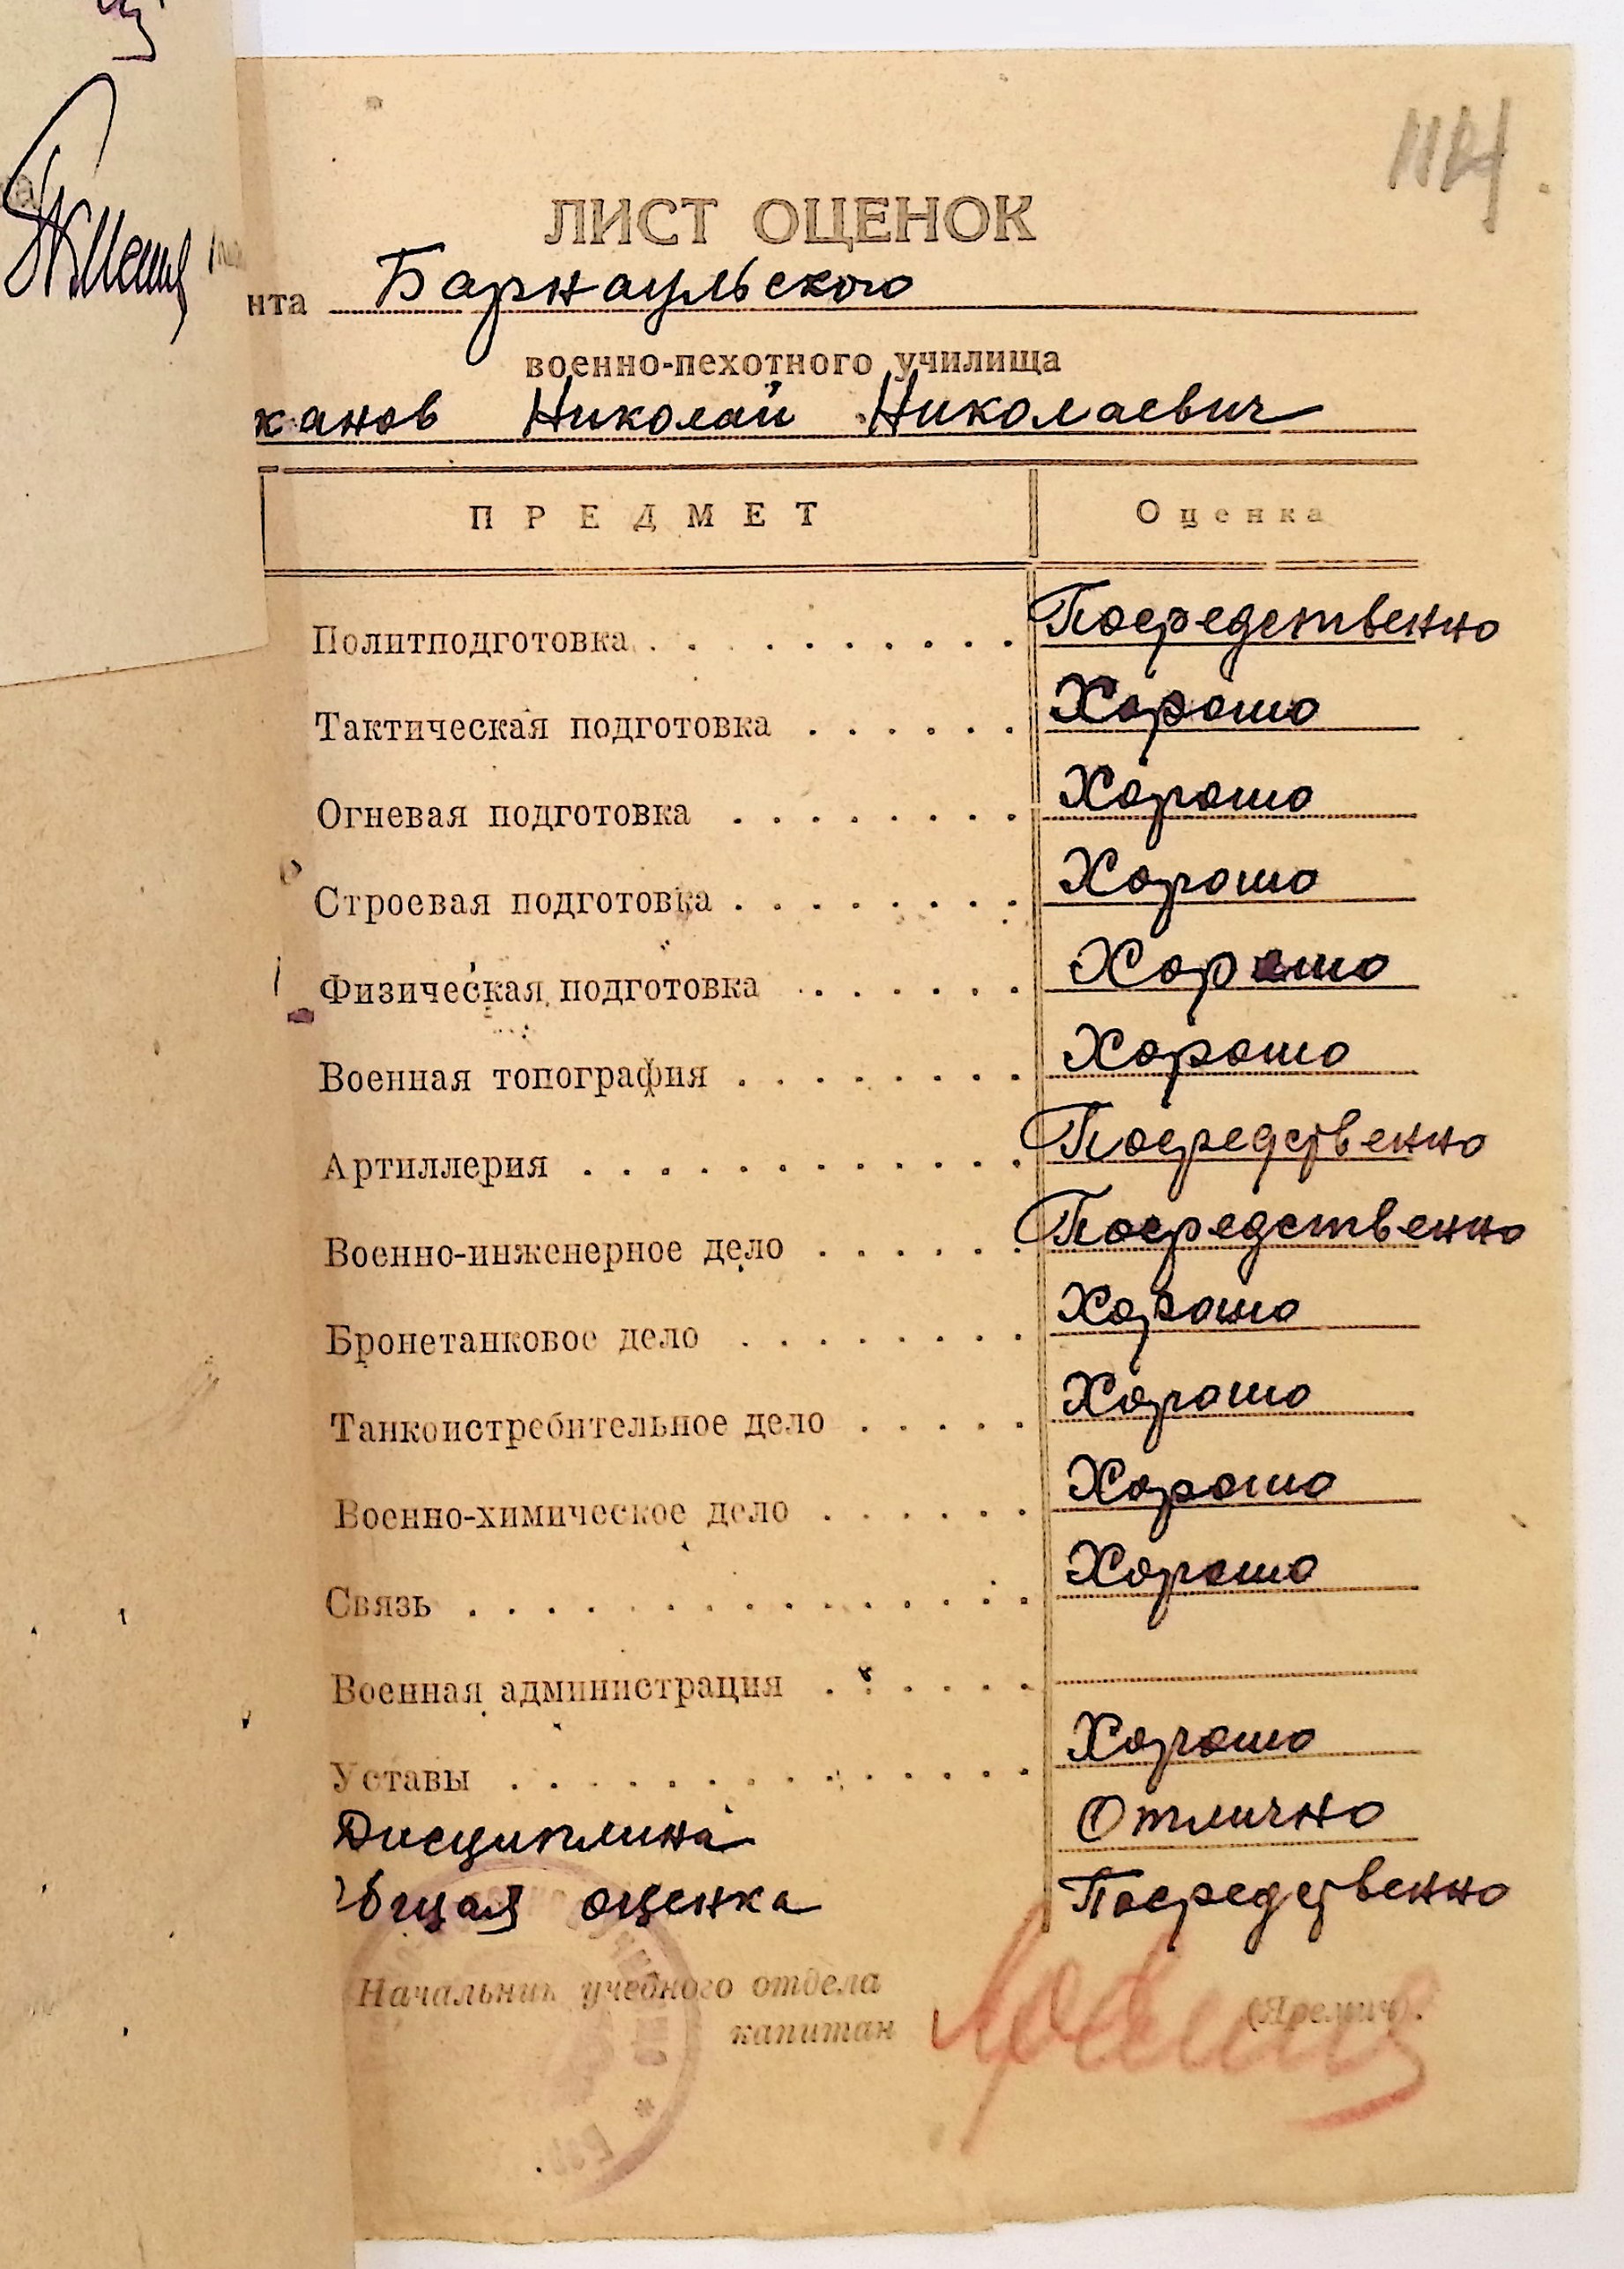 ЛИСТ ОЦЕНОК
нта Барнаульского
военно-пехотного училища
канов Николай Николаевич
ПРЕДМЕТ Оценка
Политподготовка . . . . . . . . . . Посредственно
Тактическая подготовка . . . . . . Хорошо
Огневая подготовка . . . . . . . . Хорошо
Строевая подготовка . . . . . . . . Хорошо
Физическая подготовка . . . . . . Хорошо
Военная топография . . . . . . . . Хорошо
Артиллерия . . . . . . . . . . . . Посредственно
Военно-инженерное дело . . . . . Посредственно
Бронетанковое дело . . . . . . . . Хорошо
Танкоистребительное дело . . . . . Хорошо
Военно-химическое дело . . . . . . Хорошо
Связь . . . . . . . . . . . . . . Хорошо
Военная администрация . . . . . .
Уставы . . . . . . . . . . . . . Хорошо
Дисциплина Отлично
бщая оценка Посредственно
Начальник учебного отдела
капитан (Яремич).